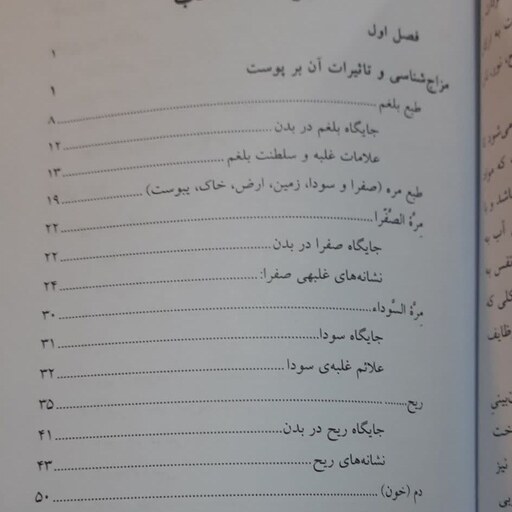 فصل اول
۱
مزاج‌شناسی و تاثیرات آن بر پوست
۱
طبع بلغم ........ ۸
جایگاه بلغم در بدن ........ ۱۲
علامات غلبه و سلطنت بلغم ........ ۱۳
طبع مره (صفرا و سودا، زمین، ارض، خاک، یبوست) ........ ۱۹
مِرَّة الصَّفْرا ........ ۲۲
جایگاه صفرا در بدن ........ ۲۲
نشانه‌های غلبهی صفرا: ........ ۲۴
مِرَّة السَّوداء ........ ۳۰
جایگاه سودا ........ ۳۱
علائم غلبه‌ی سودا ........ ۳۲
ریح ........ ۳۵
جایگاه ریح در بدن ........ ۴۱
نشانه‌های ریح ........ ۴۳
دم (خون) ........ ۵۰